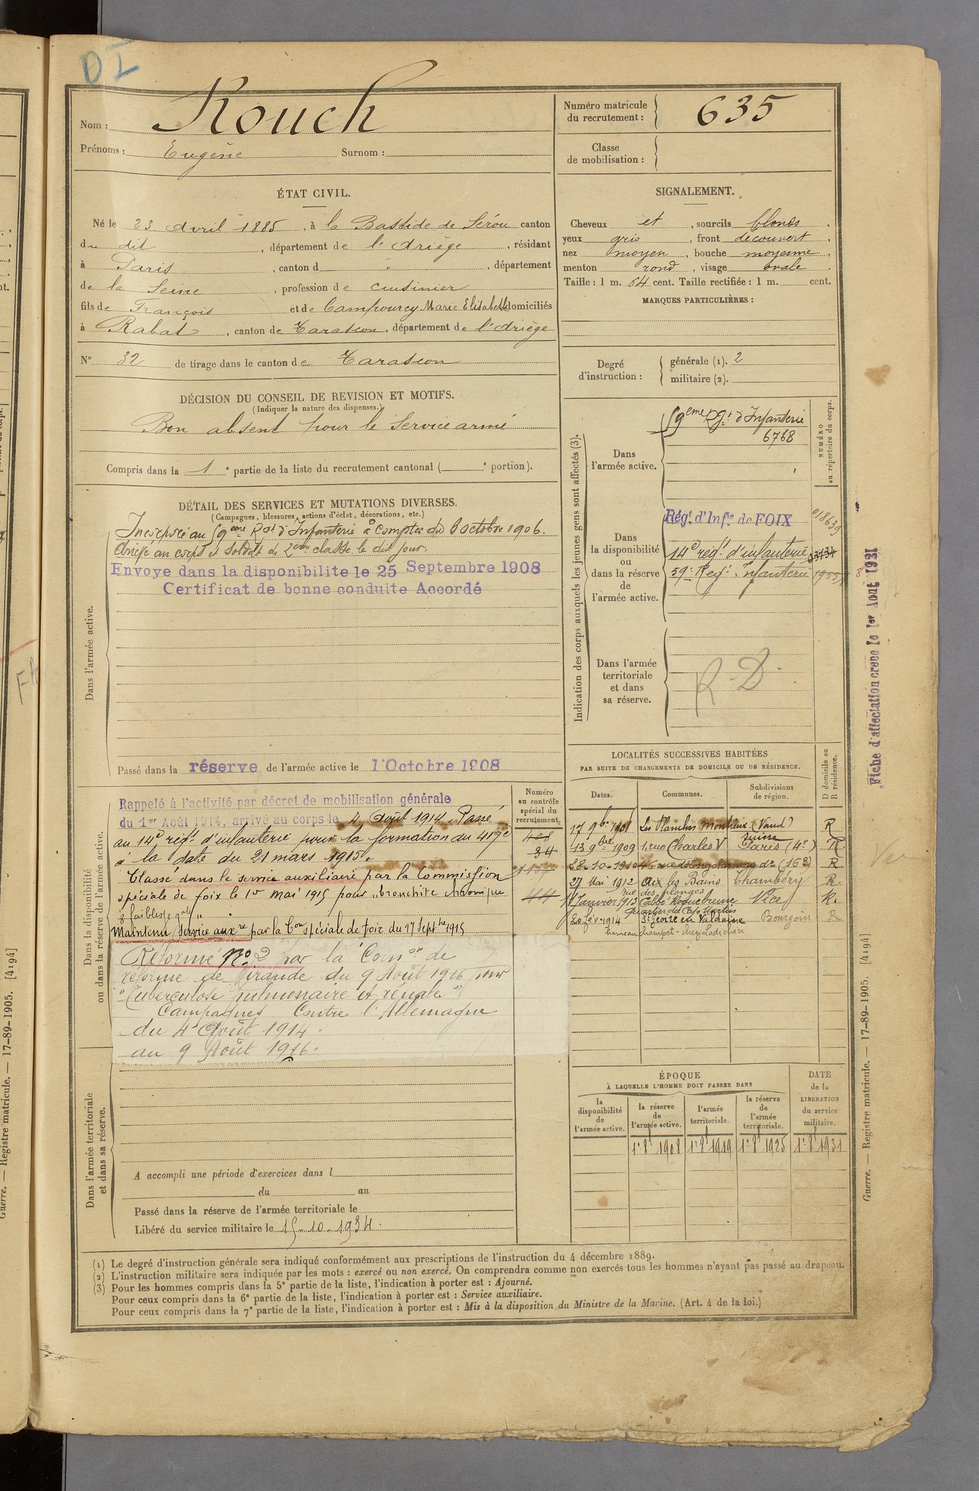 DI
Nom : Rouch
Prénoms : Eugène Surnom :
Numéro matricule du recrutement : 635
Classe de mobilisation :
ÉTAT CIVIL.
Né le 23 Avril 1885, à la Bastide de Sérou canton
du dit, département de l'Ariège, résidant
à Paris, canton d , département
de la Seine, profession de cuisinier
fils de François et de Campourcy Marie Elisabeth domiciliés
à Rabat, canton de Tarascon, département de l'Ariège
N° 32 de tirage dans le canton de Tarascon
SIGNALEMENT.
Cheveux et, sourcils blonds,
yeux gris, front découvert,
nez moyen, bouche moyenne,
menton rond, visage ovale
Taille : 1 m. 64 cent. Taille rectifiée : 1 m. cent.
MARQUES PARTICULIÈRES :
Degré d'instruction : générale (1). 2
militaire (2).
DÉCISION DU CONSEIL DE REVISION ET MOTIFS.
(Indiquer la nature des dispenses.)
Bon absent pour le Service armé
Compris dans la 1e partie de la liste du recrutement cantonal ( e portion).
DÉTAIL DES SERVICES ET MUTATIONS DIVERSES.
(Campagnes, blessures, actions d'éclat, décorations, etc.)
Dans l'armée active.
Incorporé au 59eme Rgt d'Infanterie à compter du 6 octobre 1906.
Arrivé au corps et soldat de 2eme classe le dit jour.
Envoye dans la disponibilite le 25 Septembre 1908
Certificat de bonne conduite Accordé
Passé dans la réserve de l'armée active le 1 Octobre 1908
Indication des corps auxquels les jeunes gens sont affectés (3).
NUMÉRO au répertoire du corps.
Dans l'armée active.
59eme Rgt d'Infanterie
6768
Dans la disponibilité ou dans la réserve de l'armée active.
Rég. d'Infie de FOIX
14e regt d'infanterie
59e Regt Infanterie
Dans l'armée territoriale et dans sa réserve.
R D
Fiche d'affectation créée le 1er Août 1931
Dans la disponibilité ou dans la réserve de l'armée active.
Rappelé à l'activité par décret de mobilisation générale
du 1er Août 1914, arrivé au corps le 4 Août 1914. Passé
au 14e regt d'infanterie pour la formation du 419e
à la date du 21 mars 1915.
Classé dans le service auxiliaire par la Commission
spéciale de foix le 1er mai 1915 pour "bronchite chronique
& faiblesse gale"
Maintenu Service auxre par la Con spéciale de foix du 17 septbre 1915
Réformé No 2 par la Comon de
réforme de Mirande du 9 Août 1916 pour
"Tuberculose pulmonaire et rénale"
Campagnes Contre l'Allemagne
du 4 Août 1914
au 9 Août 1916.
Numéro au contrôle spécial du recrutement.
LOCALITÉS SUCCESSIVES HABITÉES
PAR SUITE DE CHANGEMENTS DE DOMICILE OU DE RÉSIDENCE.
Dates. Communes. Subdivisions de région. D domicile ou R résidence.
17 9bre 1908 Les Planches Montreux (Vaud) Suisse R
13 9bre 1909 1, rue Charles V Paris (4e) R
28-10-1910 R
27 Mai 1912 Aix les Bains Chambéry R
Janvier 1913 Cabbé Roquebrune Nice R.
20 fév 1914 St Geoire en Valdaine Bourgoin
Dans l'armée territoriale et dans sa réserve.
A accompli une période d'exercices dans l
du au
Passé dans la réserve de l'armée territoriale le
Libéré du service militaire le 15-10-1934.
ÉPOQUE
À LAQUELLE L'HOMME DOIT PASSER DANS
la disponibilité de l'armée active. la réserve de l'armée active. l'armée territoriale. la réserve de l'armée territoriale.
DATE de la LIBÉRATION du service militaire.
1er 8bre 1908 1er 8bre 1919 1er 8bre 1925 1er 8bre 1931
(1) Le degré d'instruction générale sera indiqué conformément aux prescriptions de l'instruction du 4 décembre 1889.
(2) L'instruction militaire sera indiquée par les mots : exercé ou non exercé. On comprendra comme non exercés tous les hommes n'ayant pas passé au drapeau.
(3) Pour les hommes compris dans la 5e partie de la liste, l'indication à porter est : Ajourné.
Pour ceux compris dans la 6e partie de la liste, l'indication à porter est : Service auxiliaire.
Pour ceux compris dans la 7e partie de la liste, l'indication à porter est : Mis à la disposition du Ministre de la Marine. (Art. 4 de la loi.)
Guerre. — Registre matricule. — 17-89-1905. [4194]